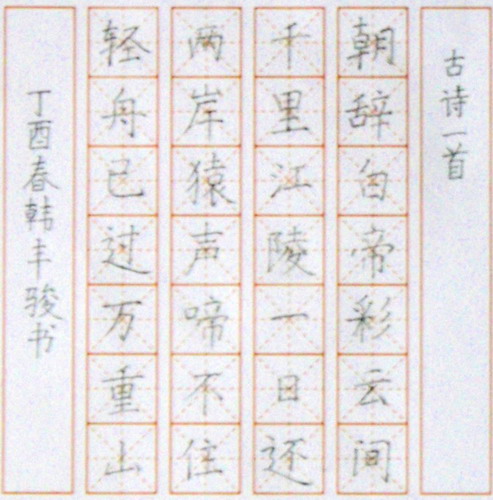 古诗一首
朝辞白帝彩云间
千里江陵一日还
两岸猿声啼不住
轻舟已过万重山
丁酉春韩丰骏书